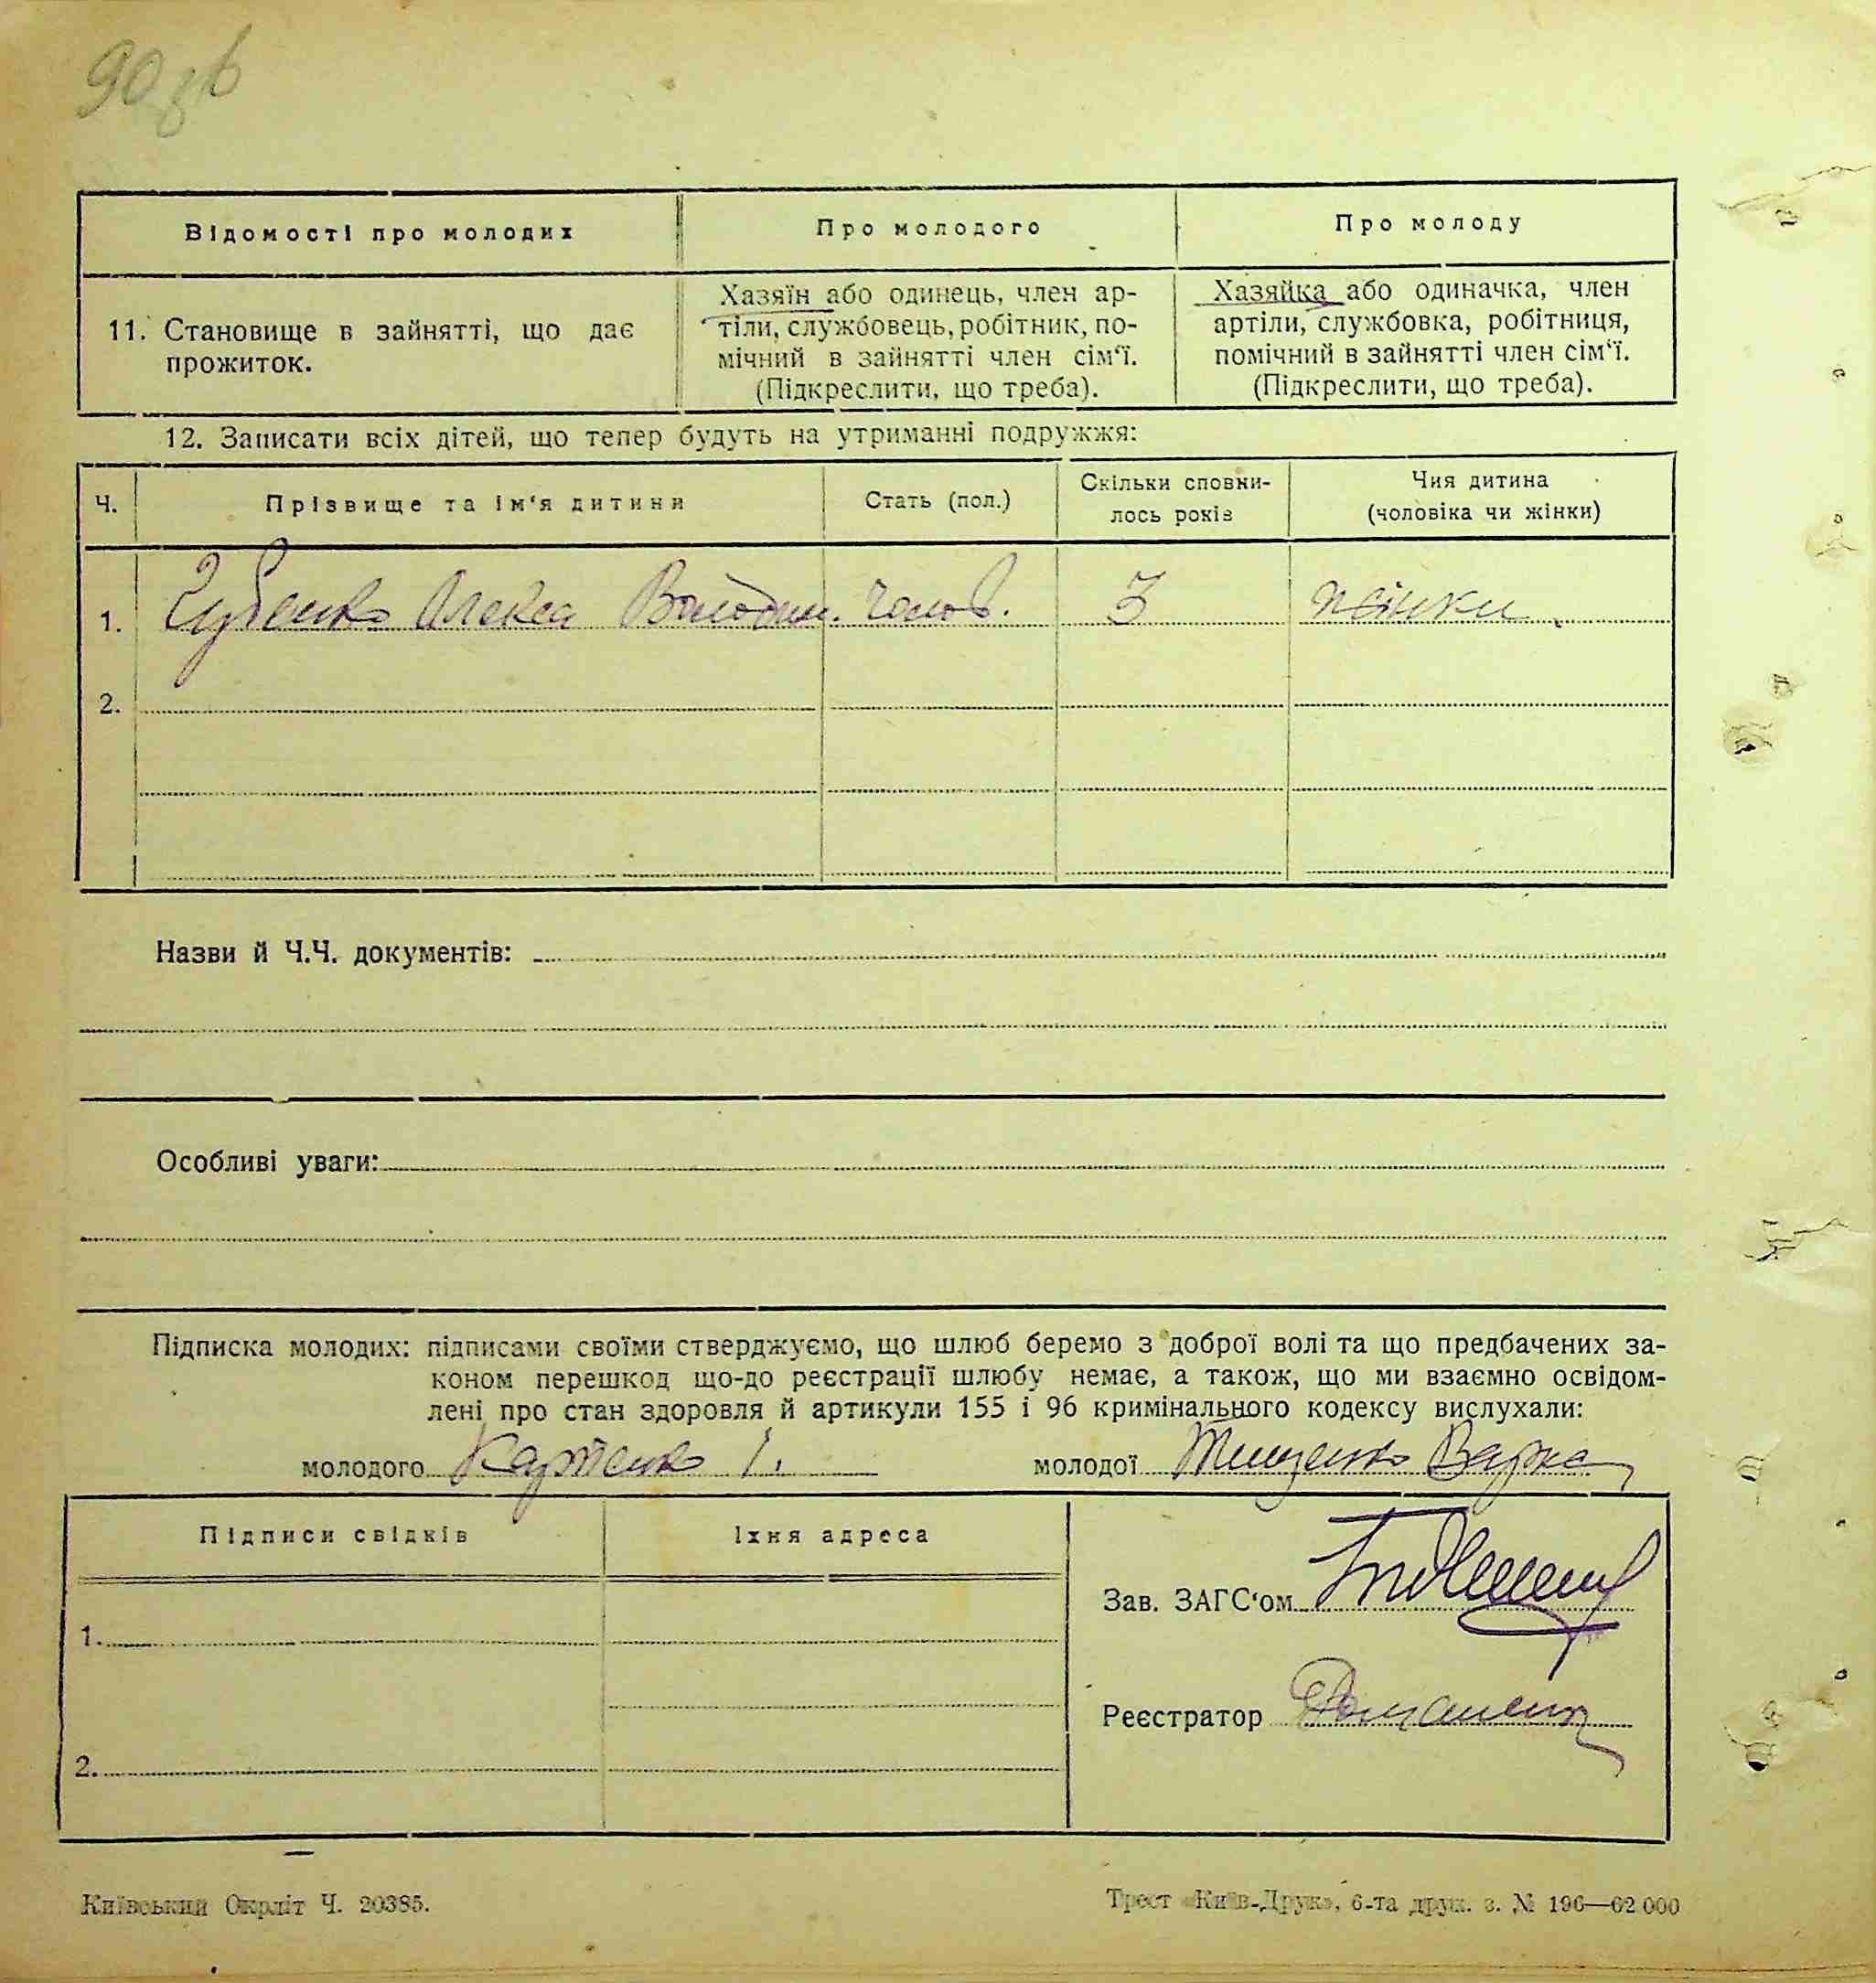 90 зв
Відомості про молодих
Про молодого
Про молоду
11. Становище в зайнятті, що дає
прожиток.
Хазяїн або одинець, член ар-
тіли, службовець, робітник, по-
мічний в зайнятті член сім‘ї.
(Підкреслити, що треба).
Хазяйка або одиначка, член
артіли, службовка, робітниця,
помічний в зайнятті член сім‘ї.
(Підкреслити, що треба).
12. Записати всіх дітей, що тепер будуть на утриманні подружжя:
Ч.
Прізвище та ім‘я дитини
Стать (пол.)
Скільки сповни-
лось років
Чия дитина
(чоловіка чи жінки)
1. Олекса Володим. чолов. 3 жінки
2.
Назви й Ч.Ч. документів:
Особливі уваги:
Підписка молодих: підписами своїми стверджуємо, що шлюб беремо з доброї волі та що предбачених за-
коном перешкод що-до реєстрації шлюбу немає, а також, що ми взаємно освідом-
лені про стан здоровля й артикули 155 і 96 кримінального кодексу вислухали:
молодого І. молодої Тищенко Варка
Підписи свідків
Їхня адреса
1.
2.
Зав. ЗАГС‘ом
Реєстратор
Київський Окрліт Ч. 20385.
Трест «Київ-Друк», 6-та друк. з. № 196—62 000